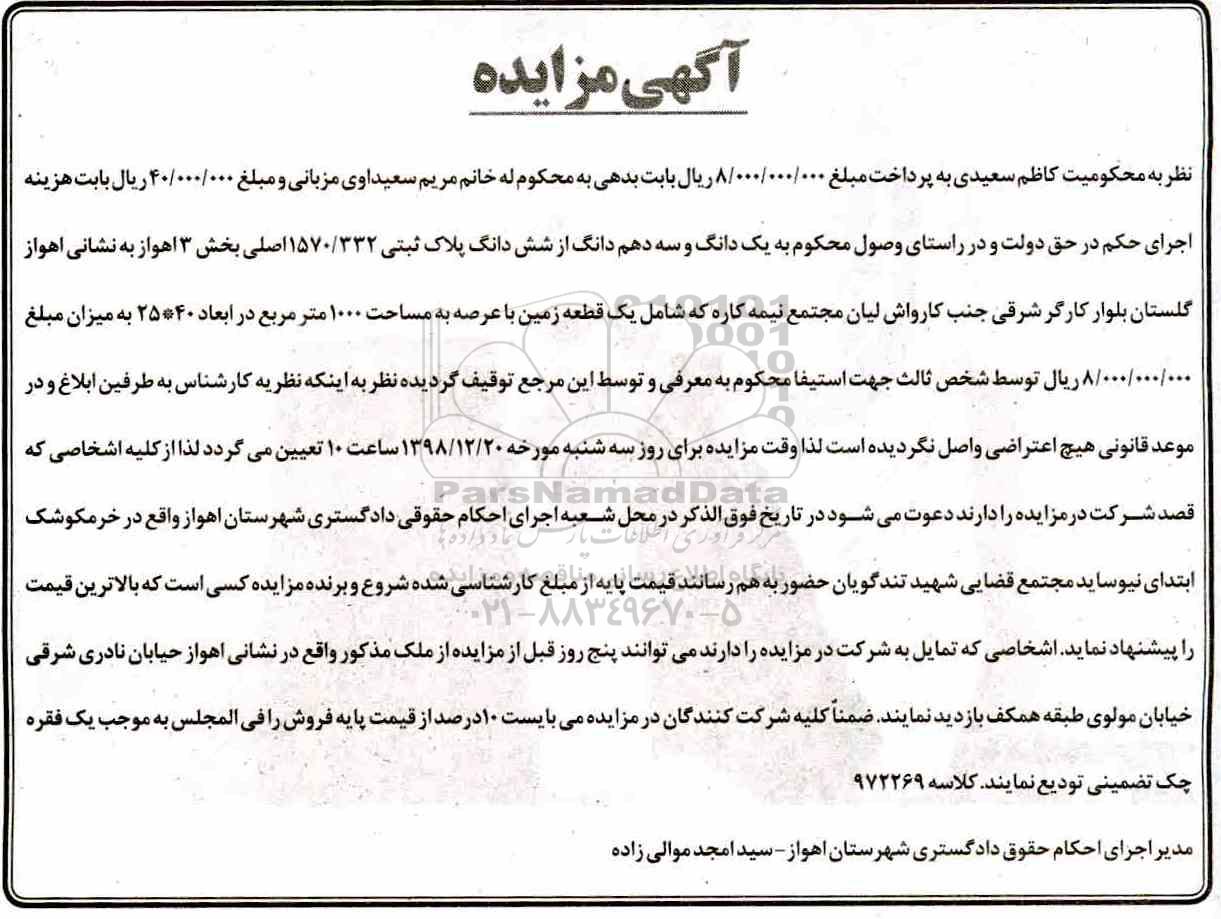 آگهی مزایده
نظر به محکومیت کاظم سعیدی به پرداخت مبلغ ۸/۰۰۰/۰۰۰/۰۰۰ ریال بابت بدهی به محکوم له خانم مریم سعیداوی مزبانی و مبلغ ۴۰/۰۰۰/۰۰۰ ریال بابت هزینه
اجرای حکم در حق دولت و در راستای وصول محکوم به یک دانگ و سه دهم دانگ از شش دانگ پلاک ثبتی ۱۵۷۰/۳۳۲ اصلی بخش ۳ اهواز به نشانی اهواز
گلستان بلوار کارگر شرقی جنب کارواش لیان مجتمع نیمه کاره که شامل یک قطعه زمین با عرصه به مساحت ۱۰۰۰ متر مربع در ابعاد ۴۰*۲۵ به میزان مبلغ
۸/۰۰۰/۰۰۰/۰۰۰ ریال توسط شخص ثالث جهت استیفا محکوم به معرفی و توسط این مرجع توقیف گردیده نظر به اینکه نظریه کارشناس به طرفین ابلاغ و در
موعد قانونی هیچ اعتراضی واصل نگردیده است لذا وقت مزایده برای روز سه شنبه مورخه ۱۳۹۸/۱۲/۲۰ ساعت ۱۰ تعیین می گردد لذا از کلیه اشخاصی که
قصد شرکت در مزایده را دارند دعوت می شود در تاریخ فوق الذکر در محل شعبه اجرای احکام حقوقی دادگستری شهرستان اهواز واقع در خرمکوشک
ابتدای نیوساید مجتمع قضایی شهید تندگویان حضور به هم رسانند قیمت پایه از مبلغ کارشناسی شده شروع و برنده مزایده کسی است که بالاترین قیمت
را پیشنهاد نماید. اشخاصی که تمایل به شرکت در مزایده را دارند می توانند پنج روز قبل از مزایده از ملک مذکور واقع در نشانی اهواز حیابان نادری شرقی
خیابان مولوی طبقه همکف بازدید نمایند. ضمناً کلیه شرکت کنندگان در مزایده می بایست ۱۰ درصد از قیمت پایه فروش را فی المجلس به موجب یک فقره
چک تضمینی تودیع نمایند. کلاسه ۹۷۲۲۶۹
مدیر اجرای احکام حقوق دادگستری شهرستان اهواز - سید امجد موالی زاده
ParsNamadData
مرکز فرآوری اطلاعات پارس نماد داده ها
پایگاه اطلاع رسانی مناقصه و مزایده
۰۲۱-۸۸۳۴۹۶۷۰-۵